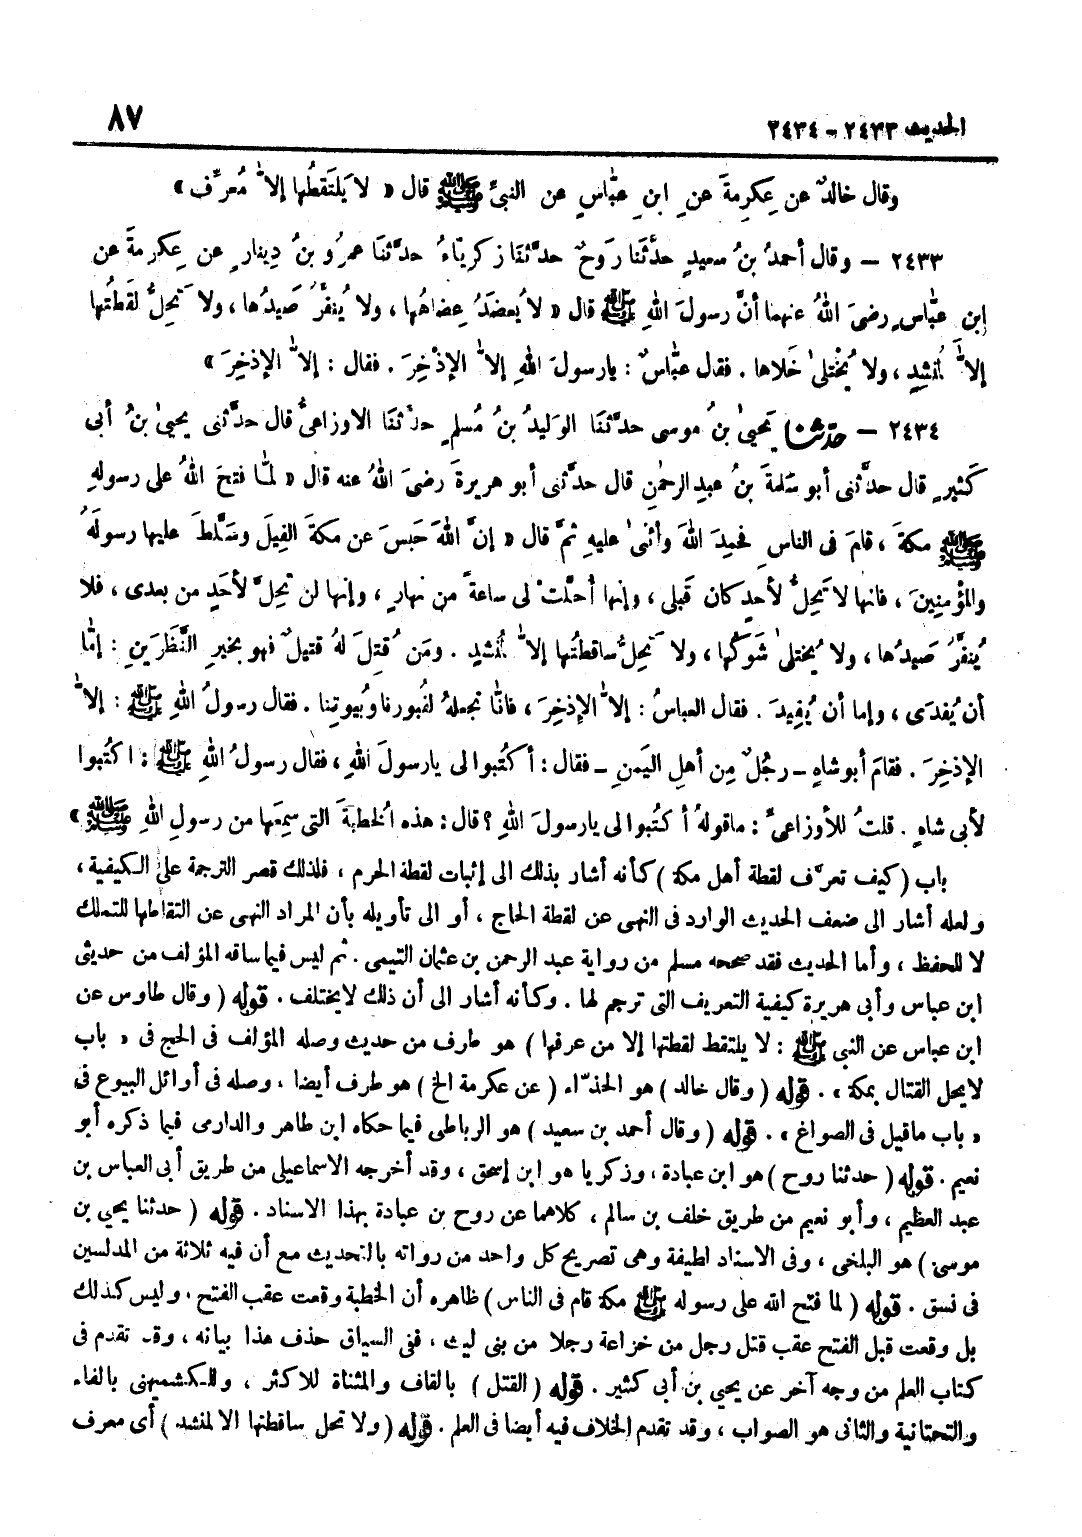 الحديث ٢٤٣٣ - ٢٤٣٤
٨٧
وقال خالدٌ عن عِكرِمةَ عنِ ابنِ عبّاسٍ عن النبيِّ ﷺ قال « لا يَلتَقطُها إلاّ مُعرِّف »
٢٤٣٣ – وقال أحمدُ بنُ سعيدٍ حدَّثنا رَوحٌ حدَّثنا زكريّاءُ حدَّثنا عمرُو بنُ دِينارٍ عن عِكرِمةَ عن
ابنِ عبّاسٍ رضىَ اللهُ عنهما أنَّ رسولَ اللهِ ﷺ قال « لا يُعضَدُ عِضاهُها ، ولا يُنفَّرُ صَيدُها ، ولا تَحِلُّ لقَطتُها
إلاّ لمُنشِدٍ ، ولا يُختلىٰ خَلاها . فقال عبّاسٌ : يارسولَ اللهِ إلاّ الإذْخِرَ . فقال : إلاّ الإذخِرَ »
٢٤٣٤ – حدّثنا يَحيىٰ بنُ موسى حدَّثنا الوَليدُ بنُ مُسلمٍ حدَّثنا الاوزاعىُّ قال حدَّثنى يحيىٰ بنُ أبى
كَثيرٍ قال حدَّثنى أبو سَلمةَ بنُ عبدِ الرحمٰنِ قال حدَّثنى أبو هريرةَ رضىَ اللهُ عنه قال « لمّا فتحَ اللهُ على رسولهِ
ﷺ مكةَ ، قامَ فى الناسِ فحمِدَ اللهَ وأثنىٰ عليهِ ثمَّ قال « إنَّ اللهَ حَبَسَ عن مكةَ الفِيلَ وسَلَّطَ عليها رسولَهُ
والمؤْمنِينَ ، فانها لا تَحِلُّ لأحدٍ كان قَبلى ، وإنها أُحلَّتْ لى ساعةً من نهارٍ ، وإنها لن تَحِلَّ لأحَدٍ من بعدى ، فلا
يُنفَّرُ صَيدُها ، ولا يُختلىٰ شَوكُها ، ولا تَحِلُّ ساقطتُها إلاّ لمُنشدٍ . ومَن قُتِلَ لهُ قتيلٌ فهو بخيرِ النَّظَرَينِ : إمّا
أن يُفدَى ، وإما أن يُقِيدَ . فقال العباسُ : إلاّ الإذخِرَ ، فانّا نجعلهُ لقُبورِنا وبُيوتِنا . فقال رسولُ اللهِ ﷺ : إلاّ
الإذخِرَ . فقامَ أبو شاهٍ – رجُلٌ مِن أهلِ اليَمنِ – فقال : اكتُبوا لى يارسولَ اللهِ ، فقال رسولُ اللهِ ﷺ : اكتُبوا
لأبى شاهٍ . قلتُ للأوزاعىِّ : ماقولهُ اكتُبوا لى يارسولَ اللهِ ؟ قال : هذه الخطبةَ التى سمِعَها من رسولِ اللهِ ﷺ »
باب ( كيف تعرّف لقطة أهل مكة ) كأنه أشار بذلك الى إثبات لقطة الحرم ، فلذلك قصر الترجمة على الكيفية ،
ولعله أشار الى ضعف الحديث الوارد فى النهى عن لقطة الحاج ، أو الى تأويله بأن المراد النهى عن التقاطها للتملك
لا للحفظ ، وأما الحديث فقد صححه مسلم من رواية عبد الرحمن بن عثمان التيمى . ثم ليس فيما ساقه المؤلف من حديثى
ابن عباس وأبى هريرة كيفية التعريف التى ترجم لها . وكأنه أشار الى أن ذلك لا يختلف . قوله ( وقال طاوس عن
ابن عباس عن النبى ﷺ : لا يلتقط لقطتها إلا من عرفها ) هو طرف من حديث وصله المؤلف فى الحج فى « باب
لا يحل القتال بمكة » . قوله ( وقال خالد ) هو الحذّاء ( عن عكرمة الخ ) هو طرف أيضا ، وصله فى أوائل البيوع فى
« باب ماقيل فى الصواغ » . قوله ( وقال أحمد بن سعيد ) هو الرباطى فيما حكاه ابن طاهر والدارمى فيما ذكره أبو
نعيم . قوله ( حدثنا روح ) هو ابن عبادة ، وزكريا هو ابن إسحق ، وقد أخرجه الاسماعيلى من طريق أبى العباس بن
عبد العظيم ، وأبو نعيم من طريق خلف بن سالم ، كلاهما عن روح بن عبادة بهذا الاسناد . قوله ( حدثنا يحيى بن
موسى ) هو البلخى ، وفى الاسناد لطيفة وهى تصريح كل واحد من رواته بالتحديث مع أن فيه ثلاثة من المدلسين
فى نسق . قوله ( لما فتح الله على رسوله ﷺ مكة قام فى الناس ) ظاهره أن الخطبة وقعت عقب الفتح . وليس كذلك
بل وقعت قبل الفتح عقب قتل رجل من خزاعة رجلا من بنى ليث ، ففى السياق حذف هذا بيانه ، وقد تقدم فى
كتاب العلم من وجه آخر عن يحيى بن أبى كثير . قوله ( القتل ) بالقاف والمثناة للاكثر ، وللكشميهنى بالفاء
والتحتانية والثانى هو الصواب ، وقد تقدم الخلاف فيه أيضا فى العلم . قوله ( ولا تحل ساقطتها الا لمنشد ) أى معرف